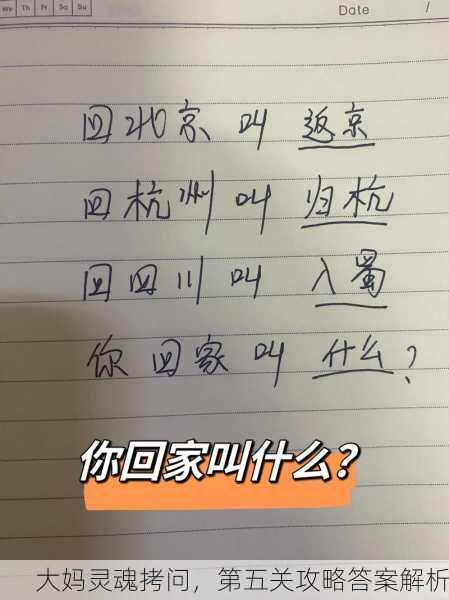 We Th Fr Sa Su
Date /
回北京叫 返京
回杭州叫 归杭
回四川叫 入蜀
你回家叫 什么?
你回家叫什么?
大妈灵魂拷问，第五关攻略答案解析